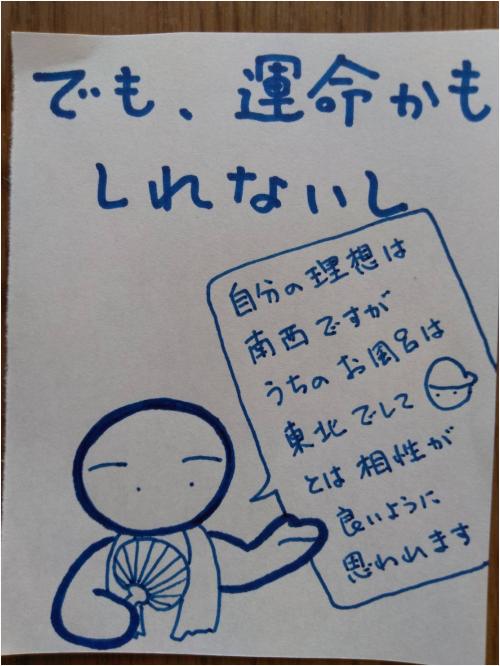 でも、運命かも
しれないし
自分の理想は
南西ですが
うちのお風呂は
東北でして
とは相性が
良いように
思われます